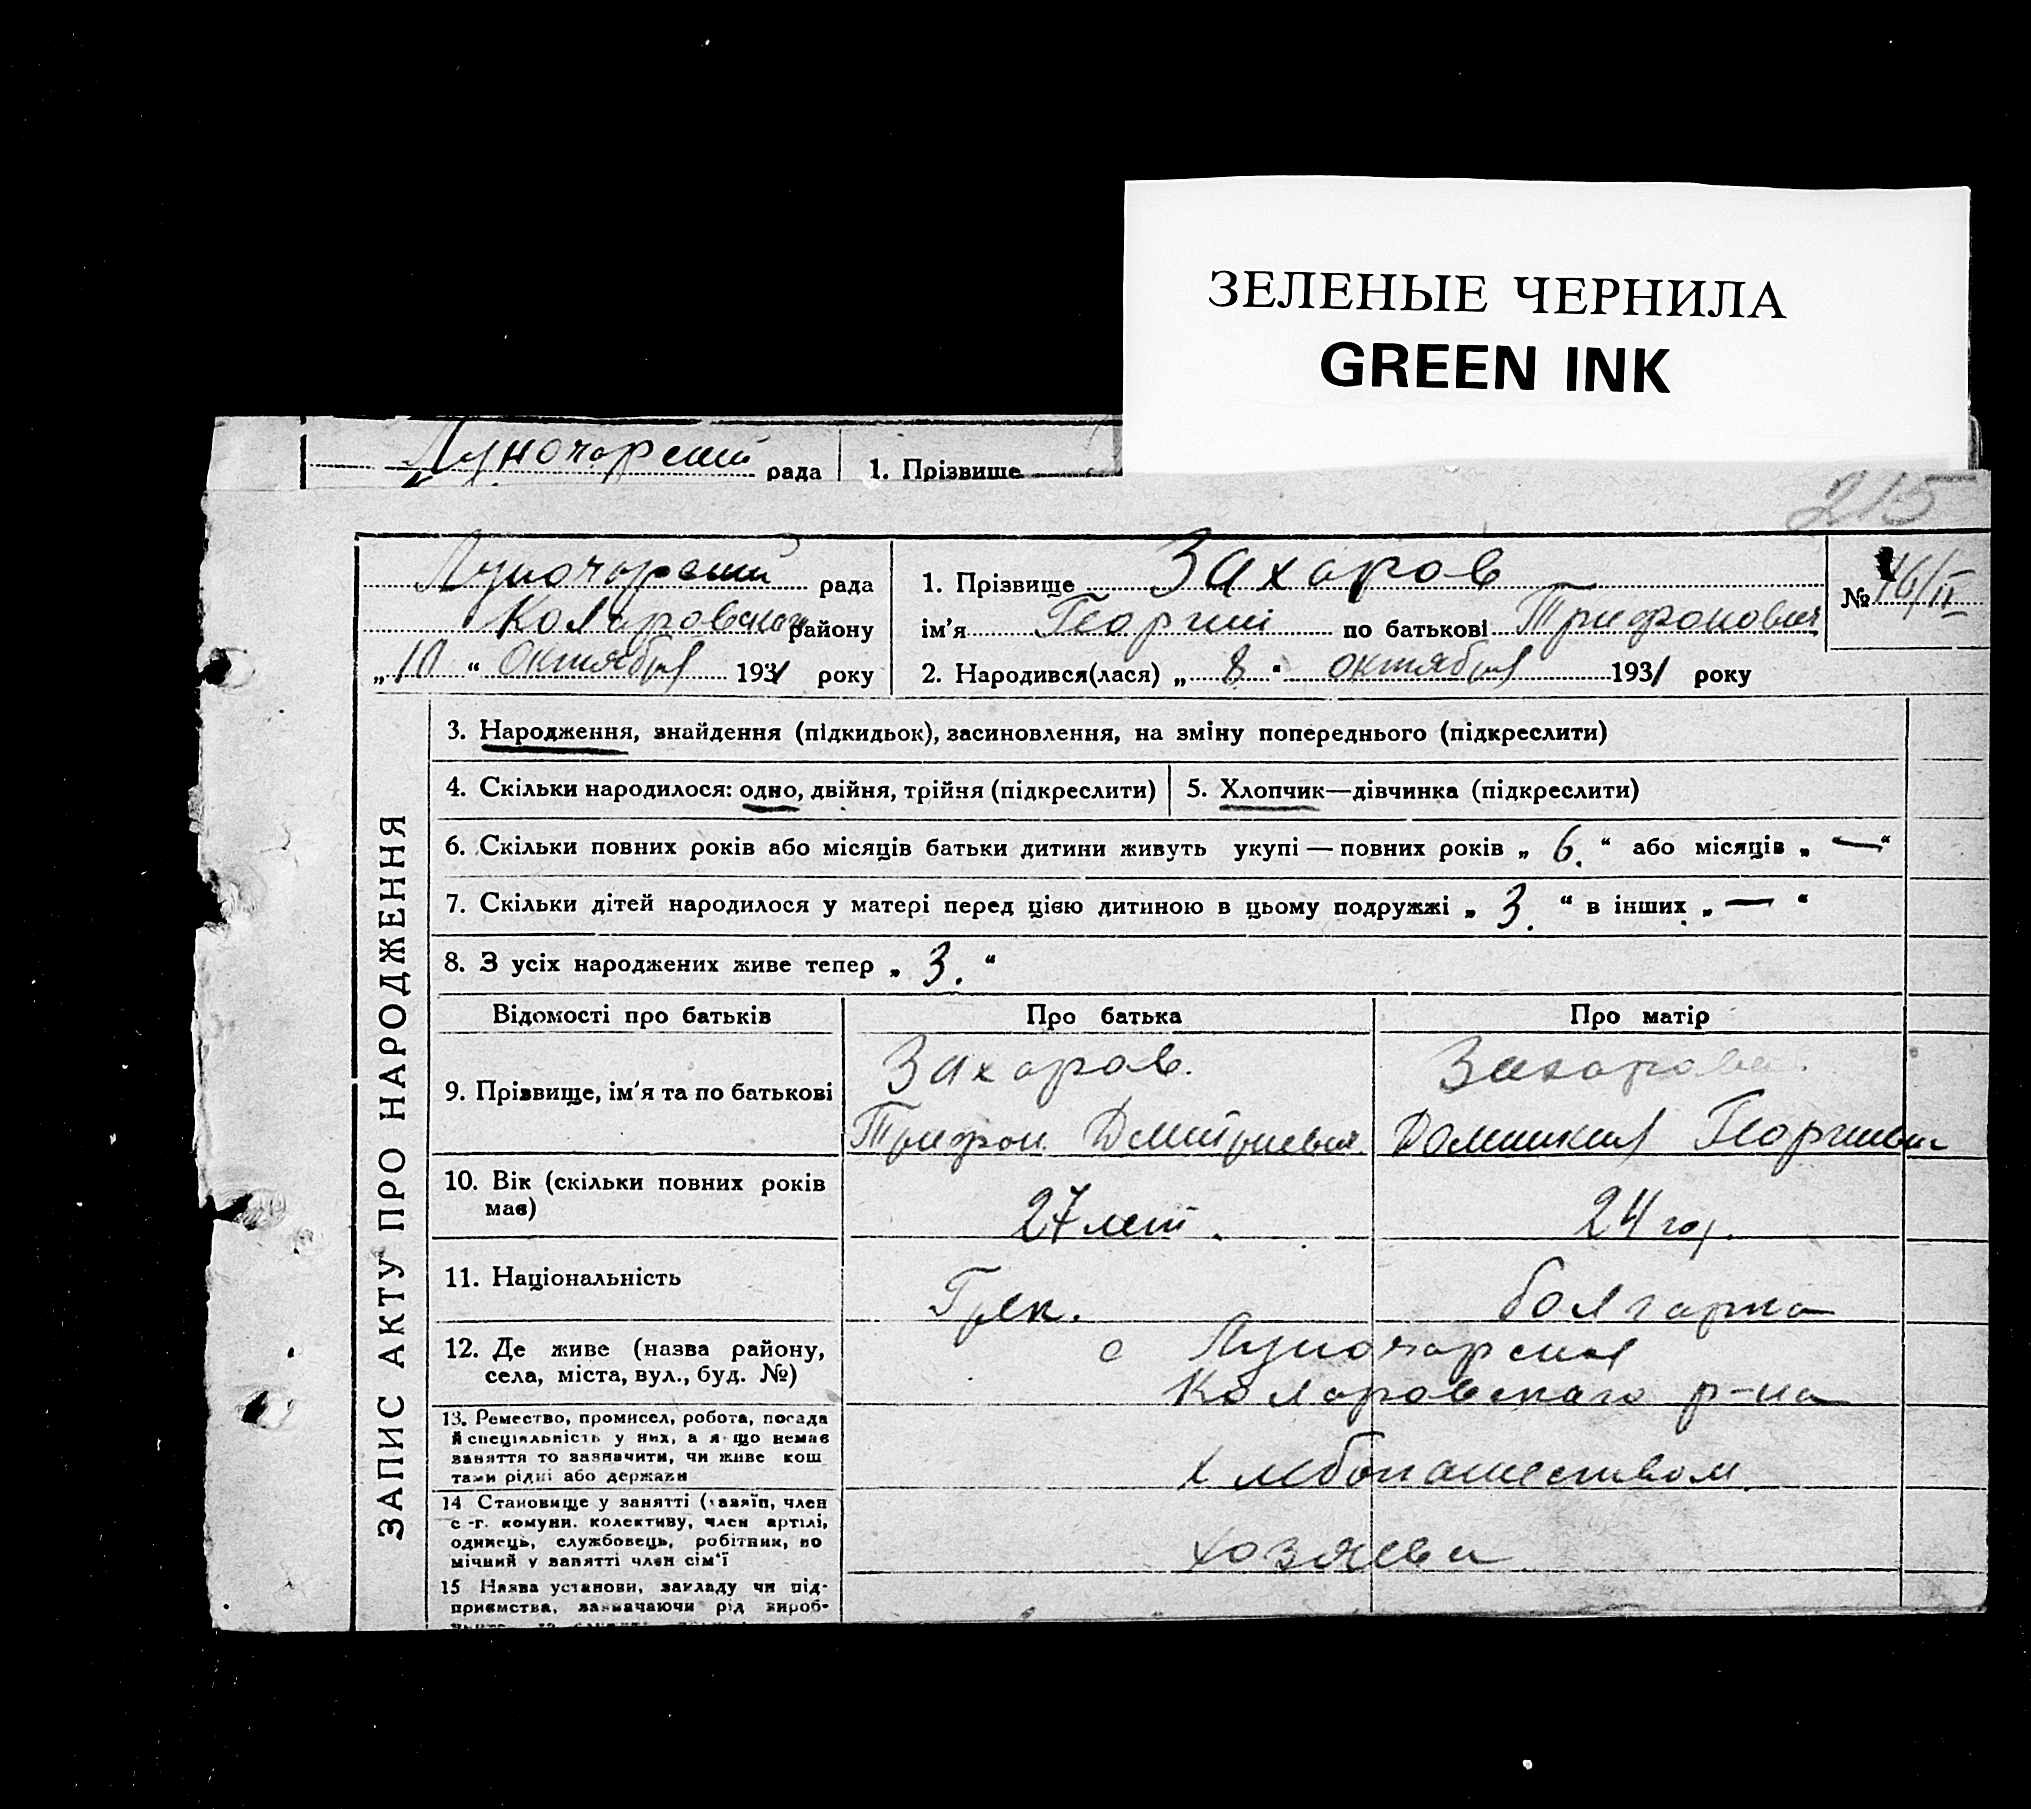 ЗЕЛЕНЫЕ ЧЕРНИЛА
GREEN INK
Луночарский рада 1. Прізвище
215
Луночарский рада
Коларовского району
„10“ октября 1931 року
1. Прізвище Захаров
ім'я Георгий по батькові Трифонович
2. Народився(лася) „8“ октября 1931 року
№ 46/II
ЗАПИС АКТУ ПРО НАРОДЖЕННЯ
3. Народження, знайдення (підкидьок), засиновлення, на зміну попереднього (підкреслити)
4. Скільки народилося: одно, двійня, трійня (підкреслити) 5. Хлопчик—дівчинка (підкреслити)
6. Скільки повних років або місяців батьки дитини живуть укупі — повних років „6.“ або місяців „—“
7. Скільки дітей народилося у матері перед цією дитиною в цьому подружжі „3.“ в інших „—“
8. З усіх народжених живе тепер „3.“
Відомості про батьків Про батька Про матір
9. Прізвище, ім'я та по батькові
Захаров. Захарова.
Трифон Дмитриевич Домникия Георгиевн
10. Вік (скільки повних років
має)
27 лет. 24 год.
11. Національність
Грек. болгарка
12. Де живе (назва району,
села, міста, вул., буд. №)
с Луночарская
Коларовскаго р-на
13. Ремество, промисел, робота, посада
й спеціяльність у них, а я що немає
заняття то зазначити, чи живе кош
тами рідні або держави
хлебопашеством
14 Становище у занятті (хазяїн, член
с-г. комуни. колективу, член артілі,
одинець, службовець, робітник, по
мічний у занятті член сім'ї
хозяева
15 Назва установи, закладу чи під-
приємства, зазначаючи рід вироб-